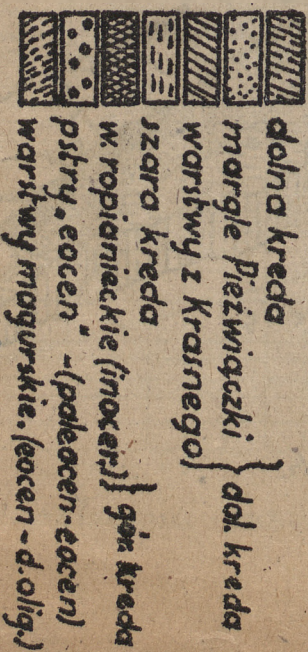 dolna kreda
margle Pieżwiączki } dol. kreda
warstwy z Krasnego
szara kreda
w. ropianieckie (inocer.) } gór. kreda
pstry „eocen" -(paleocen-eocen)
warstwy magurskie. (eocen - d. olig.)